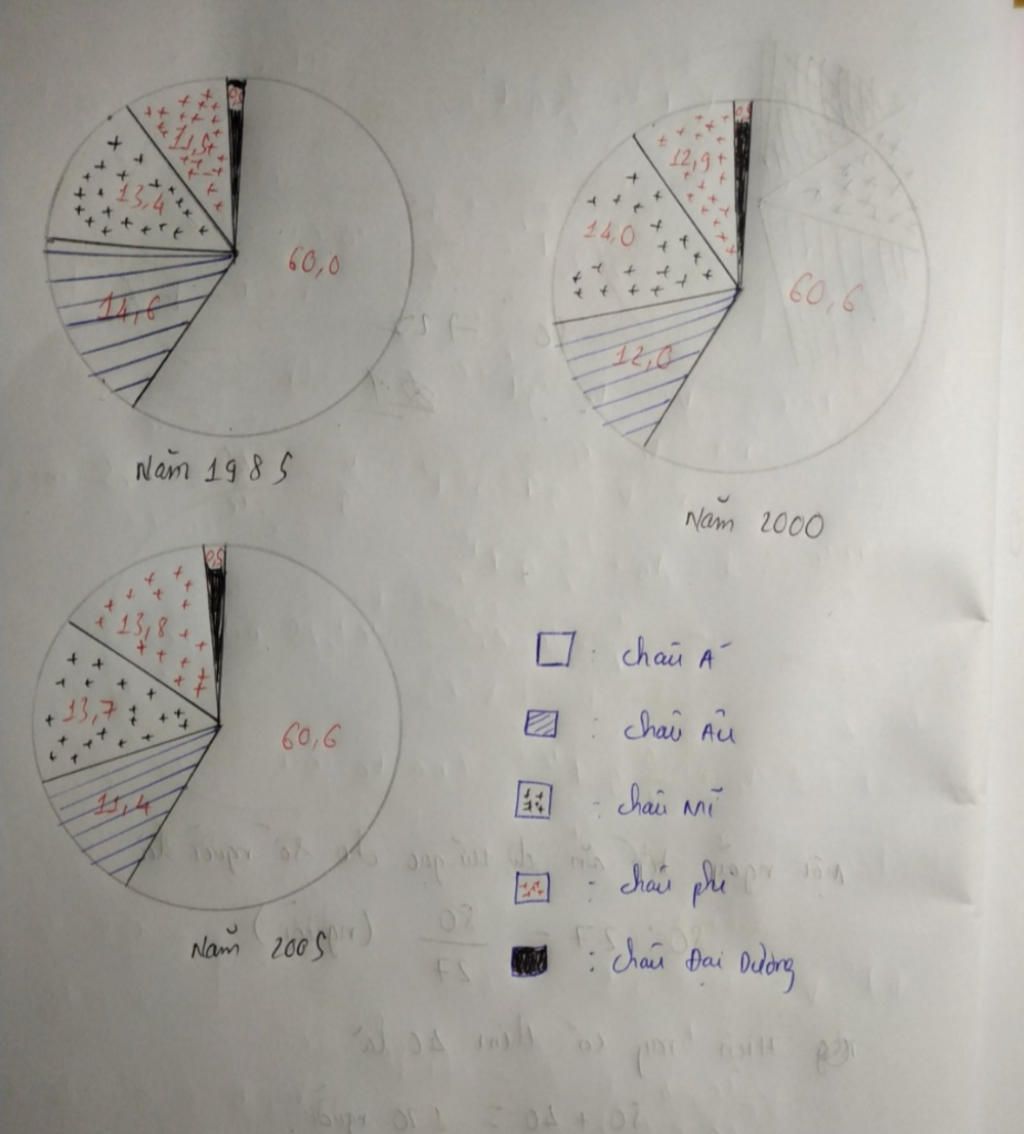 0,5
11,5
13,4
60,0
14,6
Năm 1985
0,5
12,9
14,0
60,6
12,0
Năm 2000
0,5
13,8
13,7
60,6
11,4
Năm 2005
: châu Á
: châu Âu
: châu Mĩ
: châu phi
: châu Đại Dương